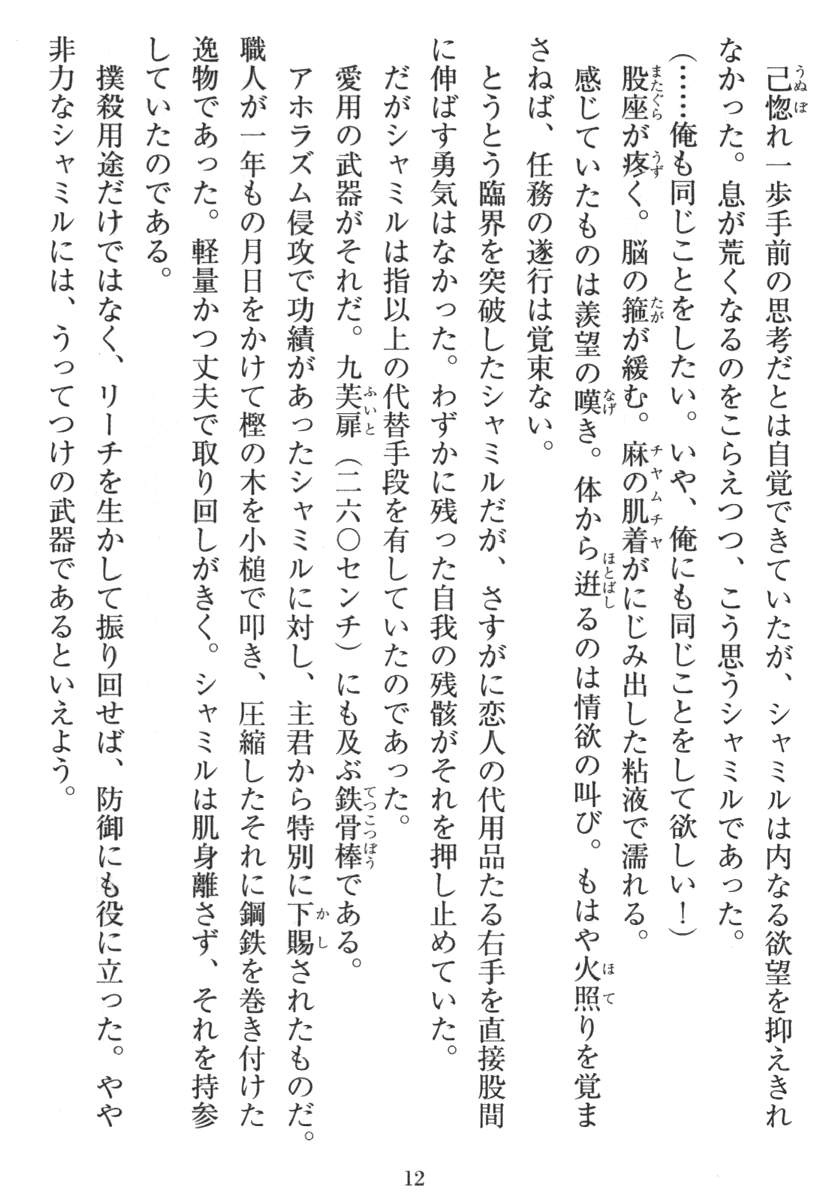 己惚れ一歩手前の思考だとは自覚できていたが、シャミルは内なる欲望を抑えきれ
なかった。息が荒くなるのをこらえつつ、こう思うシャミルであった。
(……俺も同じことをしたい。いや、俺にも同じことをして欲しい！)
股座が疼く。脳の箍が緩む。麻の肌着がにじみ出した粘液で濡れる。
感じていたものは羨望の嘆き。体から迸るのは情欲の叫び。もはや火照りを覚ま
さねば、任務の遂行は覚束ない。
とうとう臨界を突破したシャミルだが、さすがに恋人の代用品たる右手を直接股間
に伸ばす勇気はなかった。わずかに残った自我の残骸がそれを押し止めていた。
だがシャミルは指以上の代替手段を有していたのであった。
愛用の武器がそれだ。九芙扉（二六〇センチ）にも及ぶ鉄骨棒である。
アホラズム侵攻で功績があったシャミルに対し、主君から特別に下賜されたものだ。
職人が一年もの月日をかけて樫の木を小槌で叩き、圧縮したそれに鋼鉄を巻き付けた
逸物であった。軽量かつ丈夫で取り回しがきく。シャミルは肌身離さず、それを持参
していたのである。
撲殺用途だけではなく、リーチを生かして振り回せば、防御にも役に立った。やや
非力なシャミルには、うってつけの武器であるといえよう。
12